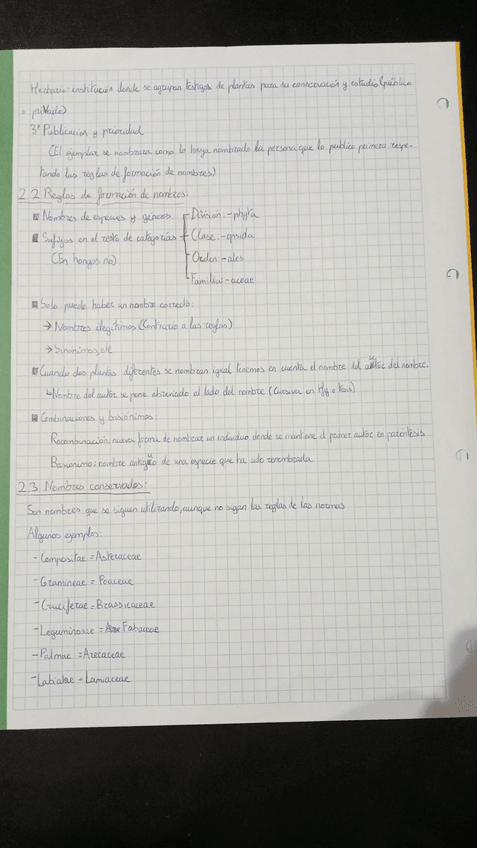 Herbario: institución donde se agrupan testigos de plantas para su conservación y estudio (pública
o privada)
3º Publicación y prioridad
(El ejemplar se nombrara como lo haya nombrado la persona que lo publico primero respe-
tando las reglas de formación de nombres)
2.2 Reglas de formación de nombres:
Nombres de especies y géneros
Sufijos en el resto de categorías
(En hongos no)
División: -phyta
Clase: -opsida
Orden: -ales
Familia: -aceae
Solo puede haber un nombre correcto:
→ Nombres ilegítimos (Contrario a las reglas)
→ Sinónimos, etc
Cuando dos plantas diferentes se nombran igual tenemos en cuenta el nombre del autor del nombre.
↳ Nombre del autor se pone abreviado al lado del nombre (Cursiva en
Combinaciones y basiónimos:
Recombinación: nueva forma de nombrar un individuo donde se mantiene el primer autor en paréntesis
Basionimo: nombre antiguo de una especie que ha sido renombrada
2.3 Nombres conservados:
Son nombres que se siguen utilizando, aunque no sigan las reglas de las normas
Algunos ejemplos:
- Compositae = Asteraceae
- Gramineae = Poaceae
- Cruciferae = Brassicaceae
- Leguminosae = Fabaceae
- Palmae = Arecaceae
- Labiatae = Lamiaceae